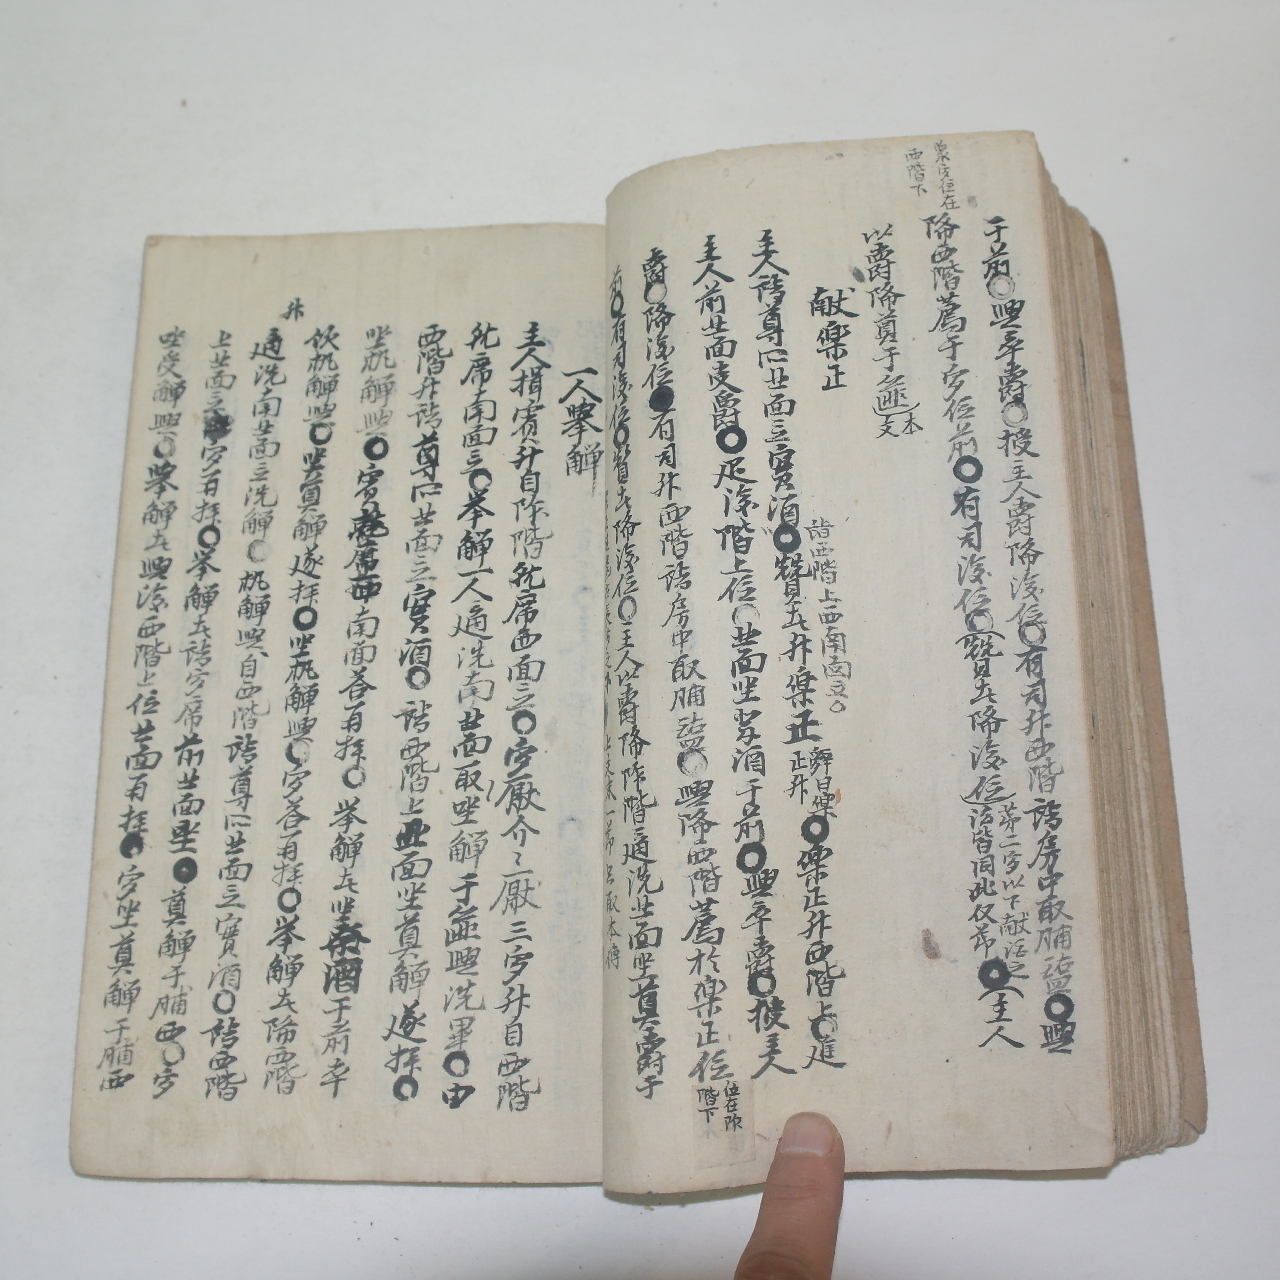 衆賓位在
西階下
于前○興卒爵○授主人爵降復位○有司升西階詣房中取脯醢○興
降西階薦于賓位前○有司復位○贊者降復位
第二賓以下献活之
該皆同此仪節
○主人
以爵降奠于篚
本
支
献樂正
詣西階上西南面立○
主人詣尊所北面立實酒○贊者升樂正
辭曰樂
正升
○樂正升西階上○進
主人前北面受爵○疋復階上位○北面坐祭酒于前○興卒爵○授主人
爵○降復位○有司升西階詣房中取脯醢○興降西階薦於樂正位
位在阼
階下
前○有司復位○贊者降復位○主人以爵降阼階適洗北面坐奠爵于
一人擧觶
主人揖賓升自阼階就席西面立○賓厭介介厭三賓升自西階
就席南面立○举觶一人適洗南北面取坐觶于篚興洗畢○由
西階升詣尊所北面立實酒○詣西階上北面坐奠觶遂拜○
坐執觶興○賓席南面答再拜○举觶者坐祭酒于前卒
飲執觶興○坐奠觶遂拜○坐執觶興○賓答再拜○举觶者降西階
升
適洗南北面立洗觶○執觶興自西階詣尊所北面立實酒○詣西階
上北面立○賓再拜○举觶者詣賓席前北面坐○奠觶于脯西○賓
坐受觶興○举觶者興復西階上位北面再拜○賓坐奠觶于脯西